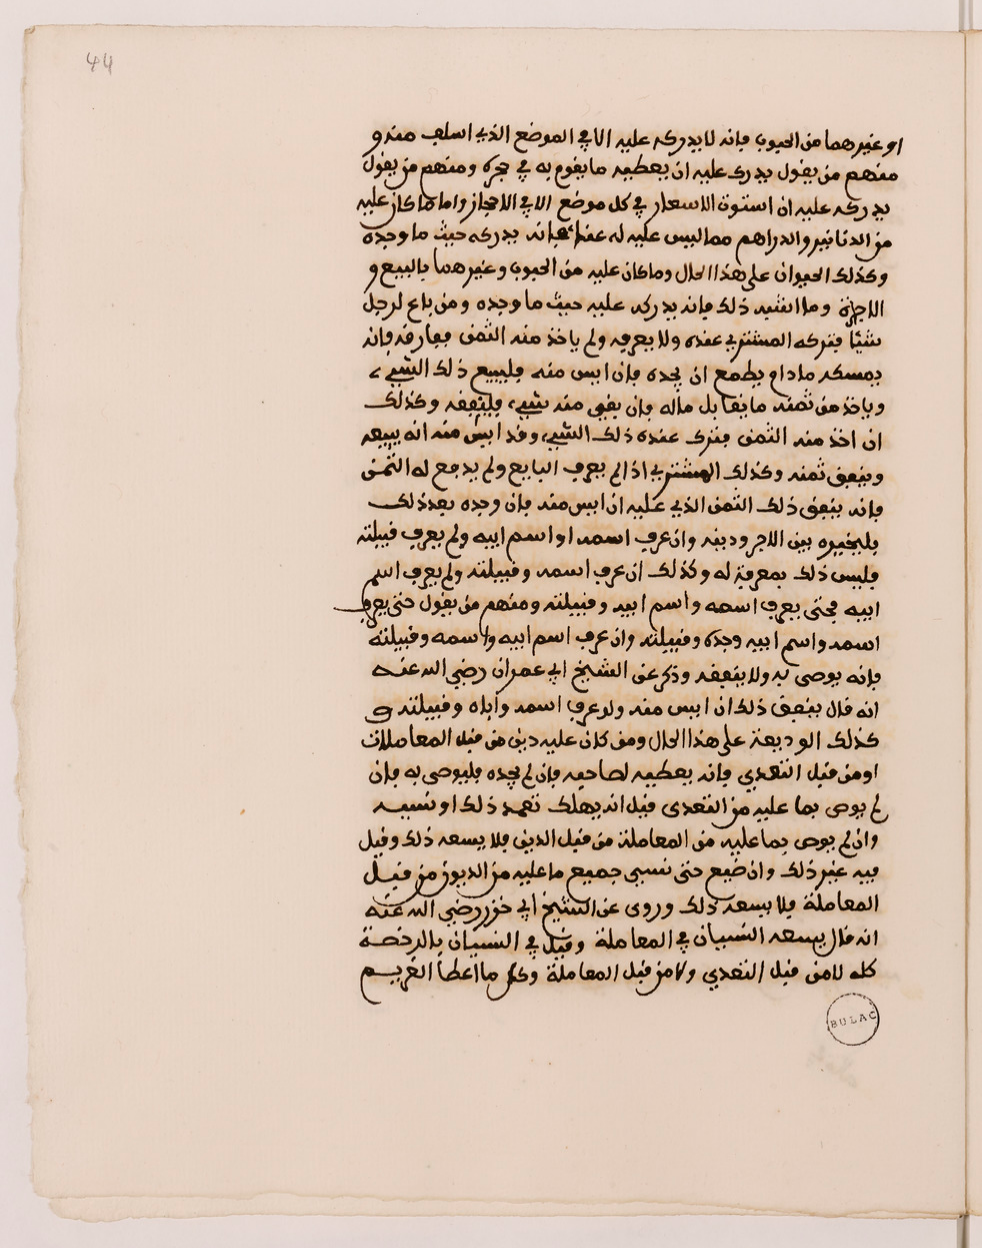 44
او غيرهما من الحبوب فانه لا يدركه عليه الا في الموضع الذي اسلف منه و
منهم من يقول يدرك عليه ان يعطيه ما يقوم به في حجره ومنهم من يقول
يدركه عليه ان استوت الاسعار في كل موضع الا في الاحجاز واما ما كان عليه
من الدنانير والدراهم مما ليس عليه له عنده فانه يدركه حيث ما وجده
وكذلك الحيوان على هذا الحال وما كان عليه من الحبوب وغيرهما بالبيع و
الاجرة وما اشبه ذلك فانه يدركه عليه حيث ما وجده ومن باع لرجل
شيئا فتركه المشتري عنده ولا يعرفه ولم ياخذ منه الثمن ففارقه فانه
يمسكه ما دام يطمع ان يجده فان ايس منه فليبيع ذلك الشيء
وياخذ من ثمنه ما يقابل ماله فان بقي منه شيء فلينفقه وكذلك
ان اخذ منه الثمن فترك عنده ذلك الشيء وقد ايس منه انه يبيعه
وينفق ثمنه وكذلك المشتري اذا لم يعرف البايع ولم يدفع له الثمن
فانه ينفق ذلك الثمن الذي عليه ان ايس منه فان وجده بعد ذلك
فليخيره بين الاجر ودينه وان عرف اسمه او اسم ابيه ولم يعرف قبيلته
فليس ذلك بمعرفة له وكذلك ان عرف اسمه وقبيلته ولم يعرف اسم
ابيه فحتى يعرف اسمه واسم ابيه وقبيلته ومنهم من يقول حتى يعرف
اسمه واسم ابيه وجده وقبيلته وان عرف اسم ابيه واسمه وقبيلته
فانه يوصي به ولا ينفقه وذكر عن الشيخ ابي عمران رضي الله عنه
انه قال ينفق ذلك ان ايس منه ولو عرف اسمه واباه وقبيلته و
كذلك الوديعة على هذا الحال ومن كان عليه دين من قبل المعاملات
او من قبل التعدي فانه يعطيه لصاحبه فان لم يجده فليوصي به فان
لم يوص بما عليه من التعدى قبل انه يهلك تعمد ذلك او نسيه
وان لم يوص بما عليه من المعاملة من قبل الدين فلا يسعه ذلك وقيل
فيه غير ذلك وان ضيع حتى نسي جميع ما عليه من الديون من قبل
المعاملة فلا يسعه ذلك وروى عن الشيخ ابي خزر رضي الله عنه
انه قال يسعه النسيان في المعاملة وقيل في النسيان بالرخصة
كله لا من قبل التعدي ولا من قبل المعاملة وكل ما اعطا الغريم
BULAC